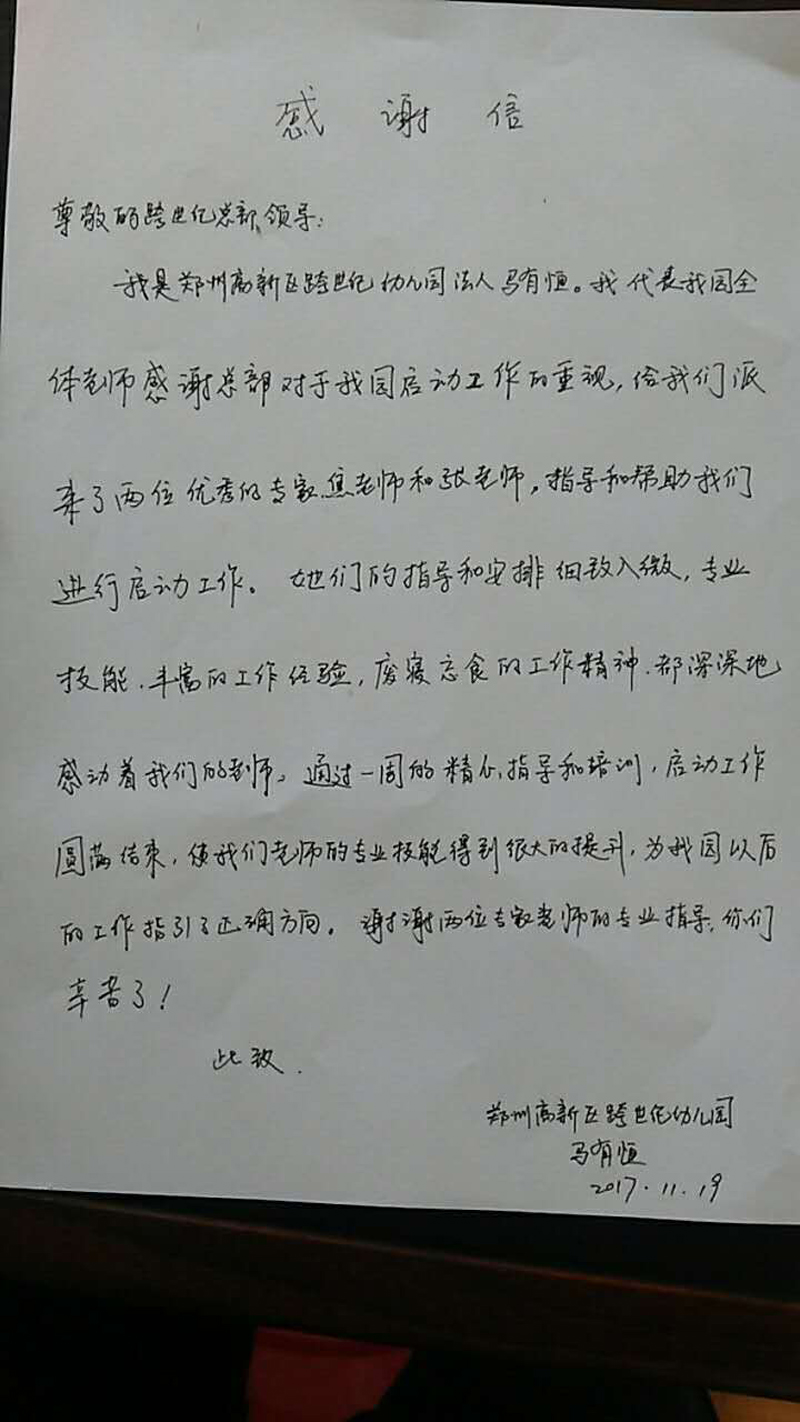 感谢信
尊敬的跨世纪总部领导:
我是郑州高新区跨世纪幼儿园法人马有恒。我代表我园全
体老师感谢总部对于我园启动工作的重视,给我们派
来了两位优秀的专家焦老师和张老师,指导和帮助我们
进行启动工作。她们的指导和安排细致入微,专业
技能、丰富的工作经验,废寝忘食的工作精神、都深深地
感动着我们的老师。通过一周的精心指导和培训,启动工作
圆满结束,使我们老师的专业技能得到很大的提升,为我园以后
的工作指引了正确方向。谢谢两位专家老师的专业指导,你们
辛苦了!
此致.
郑州高新区跨世纪幼儿园
马有恒
2017.11.19